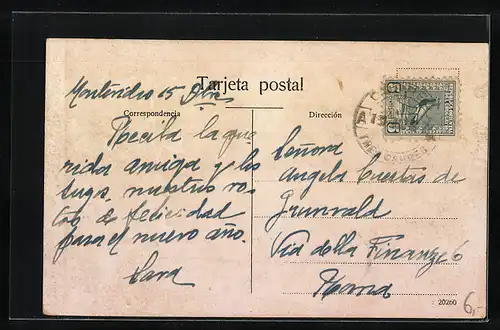 Tarjeta postal
Correspondencia
Dirección
Montevideo 15 Dbre
Reciba la que
rida amiga y los
suyos, nuestros vo
tos de felicidad
para el nuevo año.
Sara
Señora
Angela Cuestas de
Grunwald
Via delle Finanze 6
Roma
20260
6,-